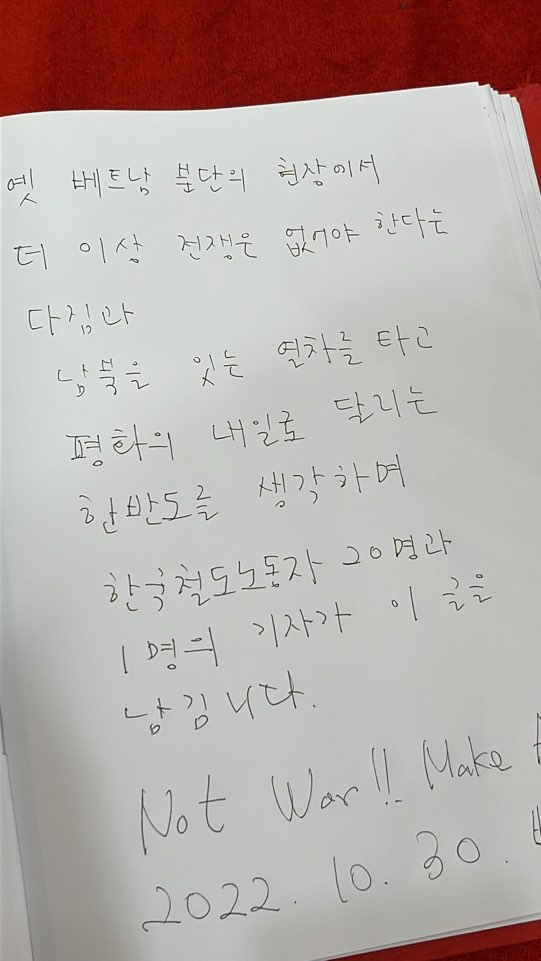 옛 베트남 분단의 현장에서
더 이상 전쟁은 없어야 한다는
다짐과
남북을 잇는 열차를 타고
평화의 내일로 달리는
한반도를 생각하며
한국철도노동자 20명과
1명의 기자가 이 글을
남깁니다.
Not War!! Make
2022. 10. 30.